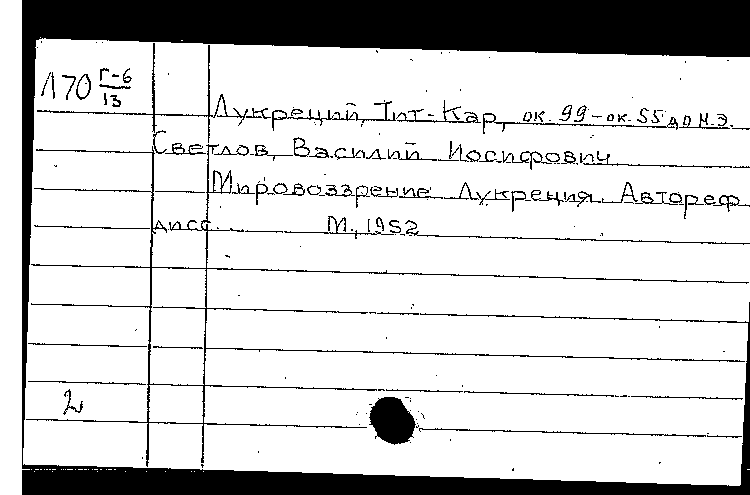 Л70 Г-6
13
Лукреций, Тит-Кар, ок. 99-ок. 55 до н.э.
Светлов, Василий Иосифович
Мировоззрение Лукреция. Автореф
дисс....  М., 1952
2